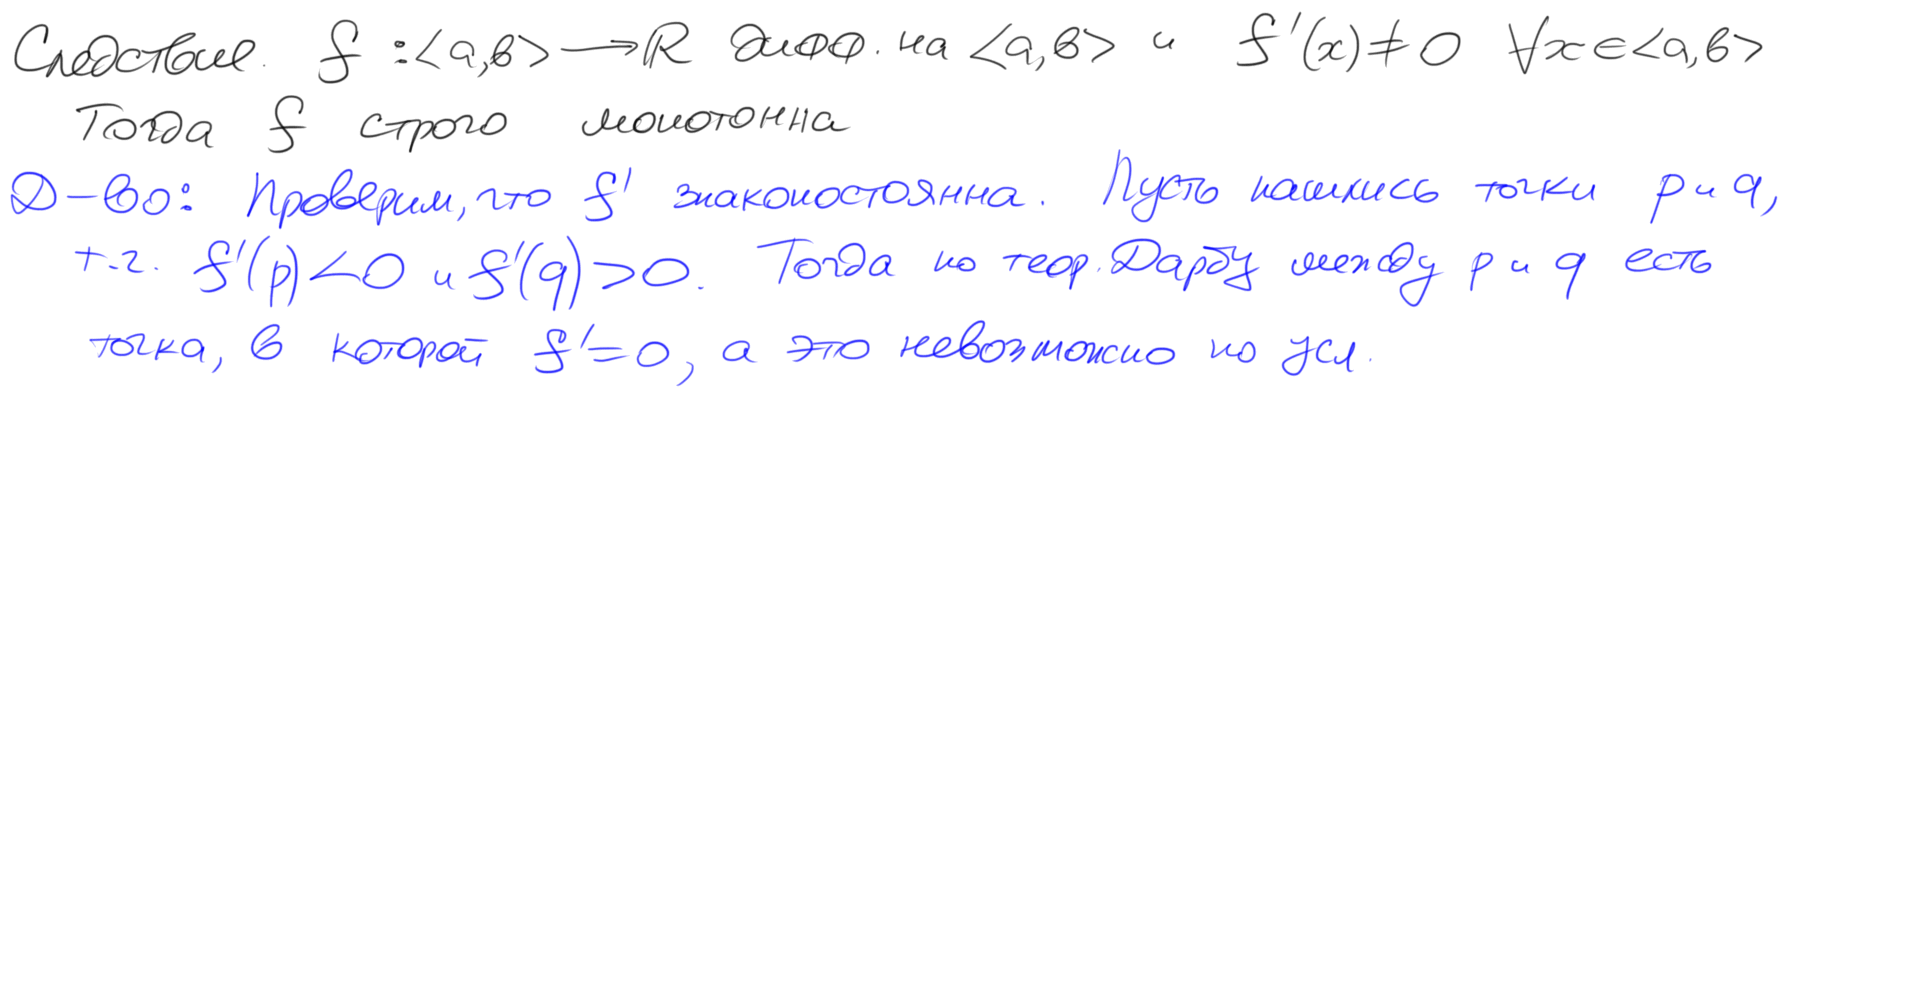 Следствие. f : <a,b> → R дифф. на <a,b> и f'(x) ≠ 0 ∀x ∈ <a,b>
Тогда f строго монотонна
Д-во: Проверим, что f' знакопостоянна. Пусть нашлись точки p и q,
т.ч. f'(p) < 0 и f'(q) > 0. Тогда по теор. Дарбу между p и q есть
точка, в которой f' = 0, а это невозможно по усл.